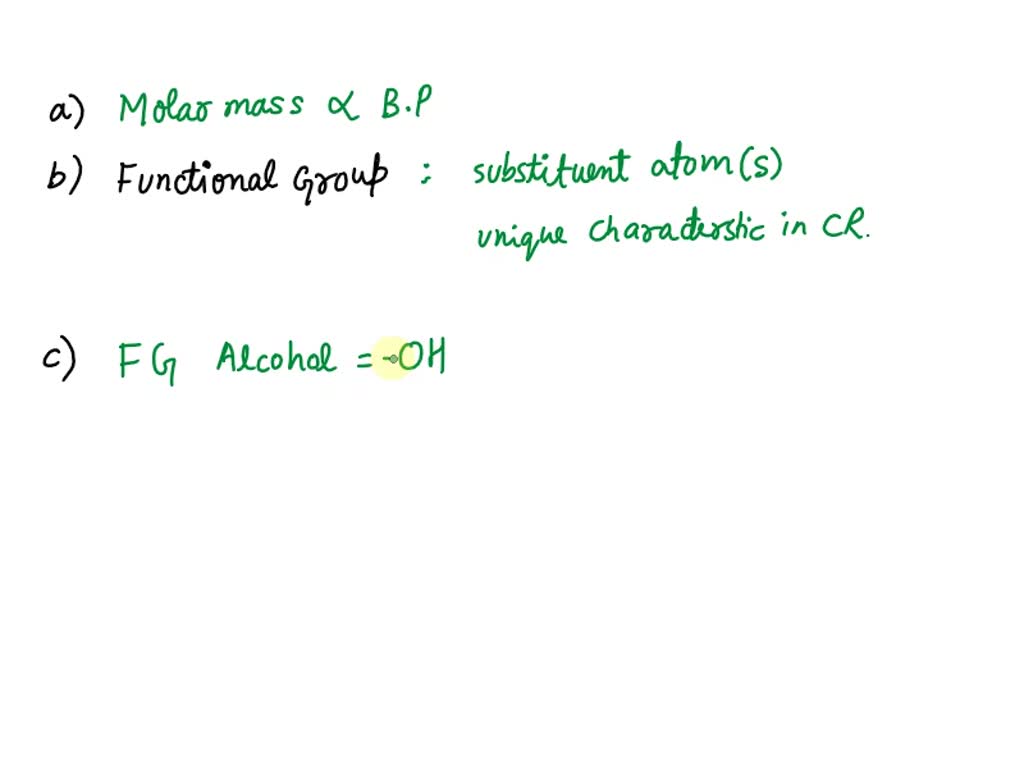 a) Molar mass ∝ B.P
b) Functional Group : substituent atom(s)
unique characterstic in CR.
c) FG Alcohol = -OH